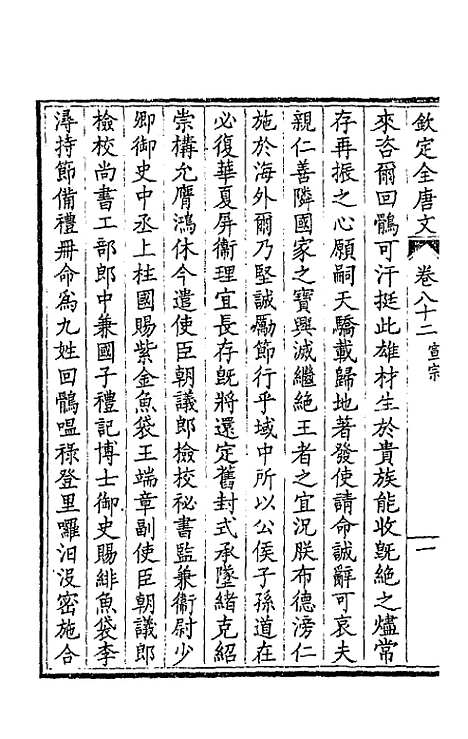 欽定全唐文 卷八十二 宣宗 一
來咨爾回鶻可汗挺此雄材生於貴族能收既絕之燼常
存再振之心願嗣天驕載歸地著發使請命誠辭可哀夫
親仁善隣國家之寶興滅繼絕王者之宜況朕布德滂仁
施於海外爾乃堅誠勵節行乎域中所以公侯子孫道在
必復華夏屏衞理宜長存旣將還定舊封式承墜緒克紹
崇構允膺鴻休今遣使臣朝議郎檢校祕書監兼衞尉少
卿御史中丞上柱國賜紫金魚袋王端章副使臣朝議郎
檢校尚書工部郎中兼國子禮記博士御史賜緋魚袋李
潯持節備禮冊命為九姓回鶻嗢祿登里囉汩沒密施合